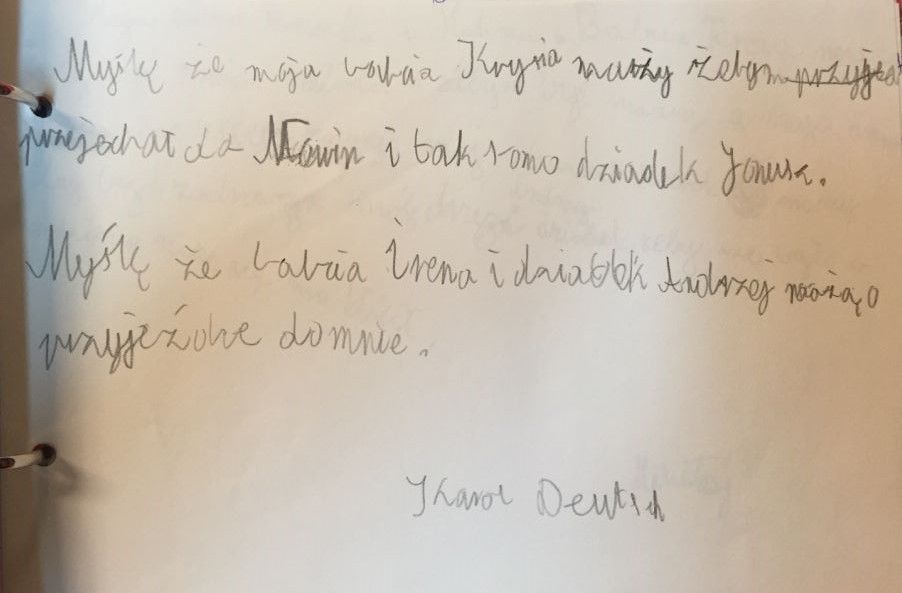 Myślę że moja babcia Krysia marzy żebym
przejechał do Nowin i tak samo dziadek Janusz.
Myślę że babcia Irena i dziadek Andrzej mażą o
przyjeźdźe do mnie.
Karol Deutsch